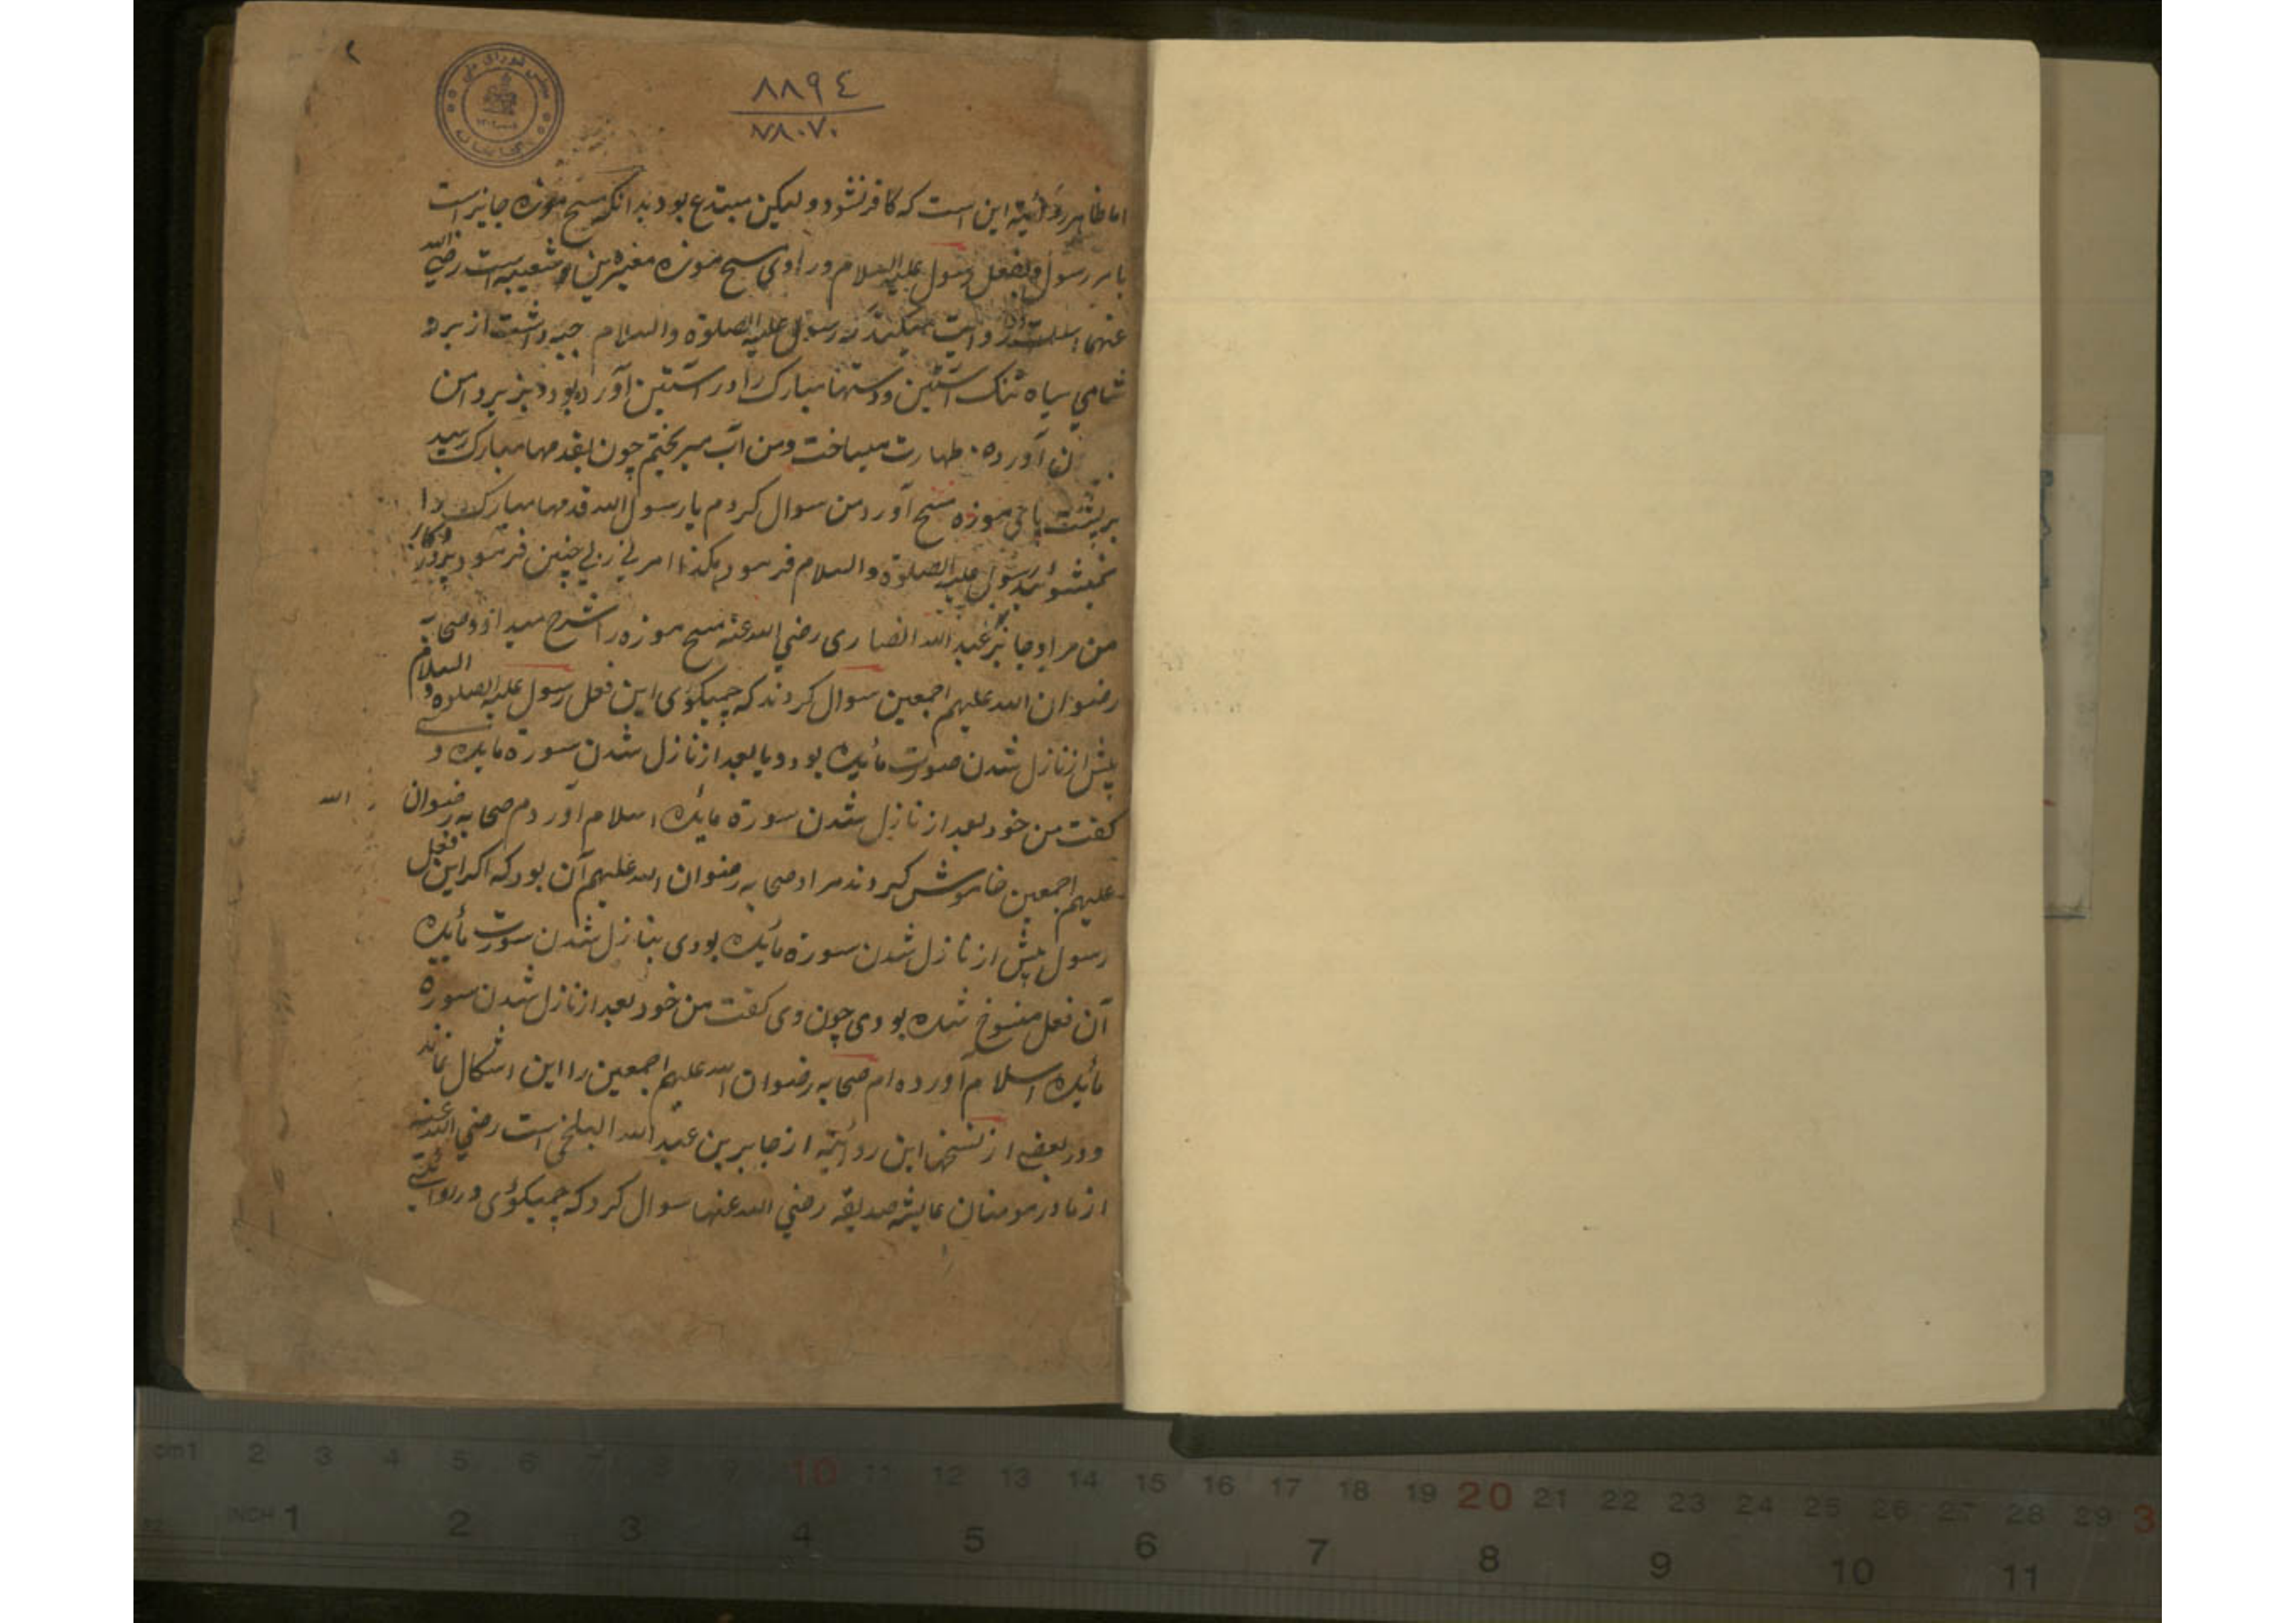 ۲
۸۸۹٤
۷۸۰۷۰
اما ظاهر روایته این است که کافر نشود و لیکن مبتدع بود بدانکه مسح موزه جایز است
بامر رسول و بفعل رسول علیه السلام و راوی مسح موزه مغیره بن شعبه است رضی الله
عنهما روایت میکند که رسول علیه الصلوة والسلام جبه داشت از برد
شامی سیاه تنک آستین و دستها مبارک را در آستین آورده بود و بزیر دامن
آورده طهارت میساخت و من آب میریختم چون بقدمها مبارک رسید
بر پشت پای موزه مسح آورد من سوال کردم یا رسول الله قدمها مبارک را
نمیشوئید رسول علیه الصلوة والسلام فرمود هکذا امرنی ربی چنین فرمود پروردکار
من مرا و جابر عبد الله انصاری رضی الله عنه مسح موزه را شرح میداد و صحابه
رضوان الله علیهم اجمعین سوال کردند که چمیکوئی این فعل رسول علیه الصلوة و السلام
پیش از نازل شدن صورت مایده بود و یا بعد از نازل شدن سورة مایده و
کفت من خود بعد از نازل شدن سورة مایده اسلام آوردم صحابه رضوان الله
علیهم اجمعین خاموش کردند مراد صحابه رضوان الله علیهم آن بود که اکر این فعل
رسول پیش از نازل شدن سورة مایده بودی بنازل شدن سورت مایده
آن فعل منسوخ شده بودی چون وی کفت من خود بعد از نازل شدن سورة
مایده اسلام آورده ام صحابه رضوان الله علیهم اجمعین را این اشکال نماند
و در بعضی از نسخها این روایته از جابر بن عبد الله البلخی است رضی الله عنه
از مادر مومنان عایشه صدیقه رضی الله عنها سوال کرد که چمیکوئی در روایتی
cm1 2 3 4 5 6 7 8 9 10 11 12 13 14 15 16 17 18 19 20 21 22 23 24 25 26 27 28 29 3
INCH 1 2 3 4 5 6 7 8 9 10 11